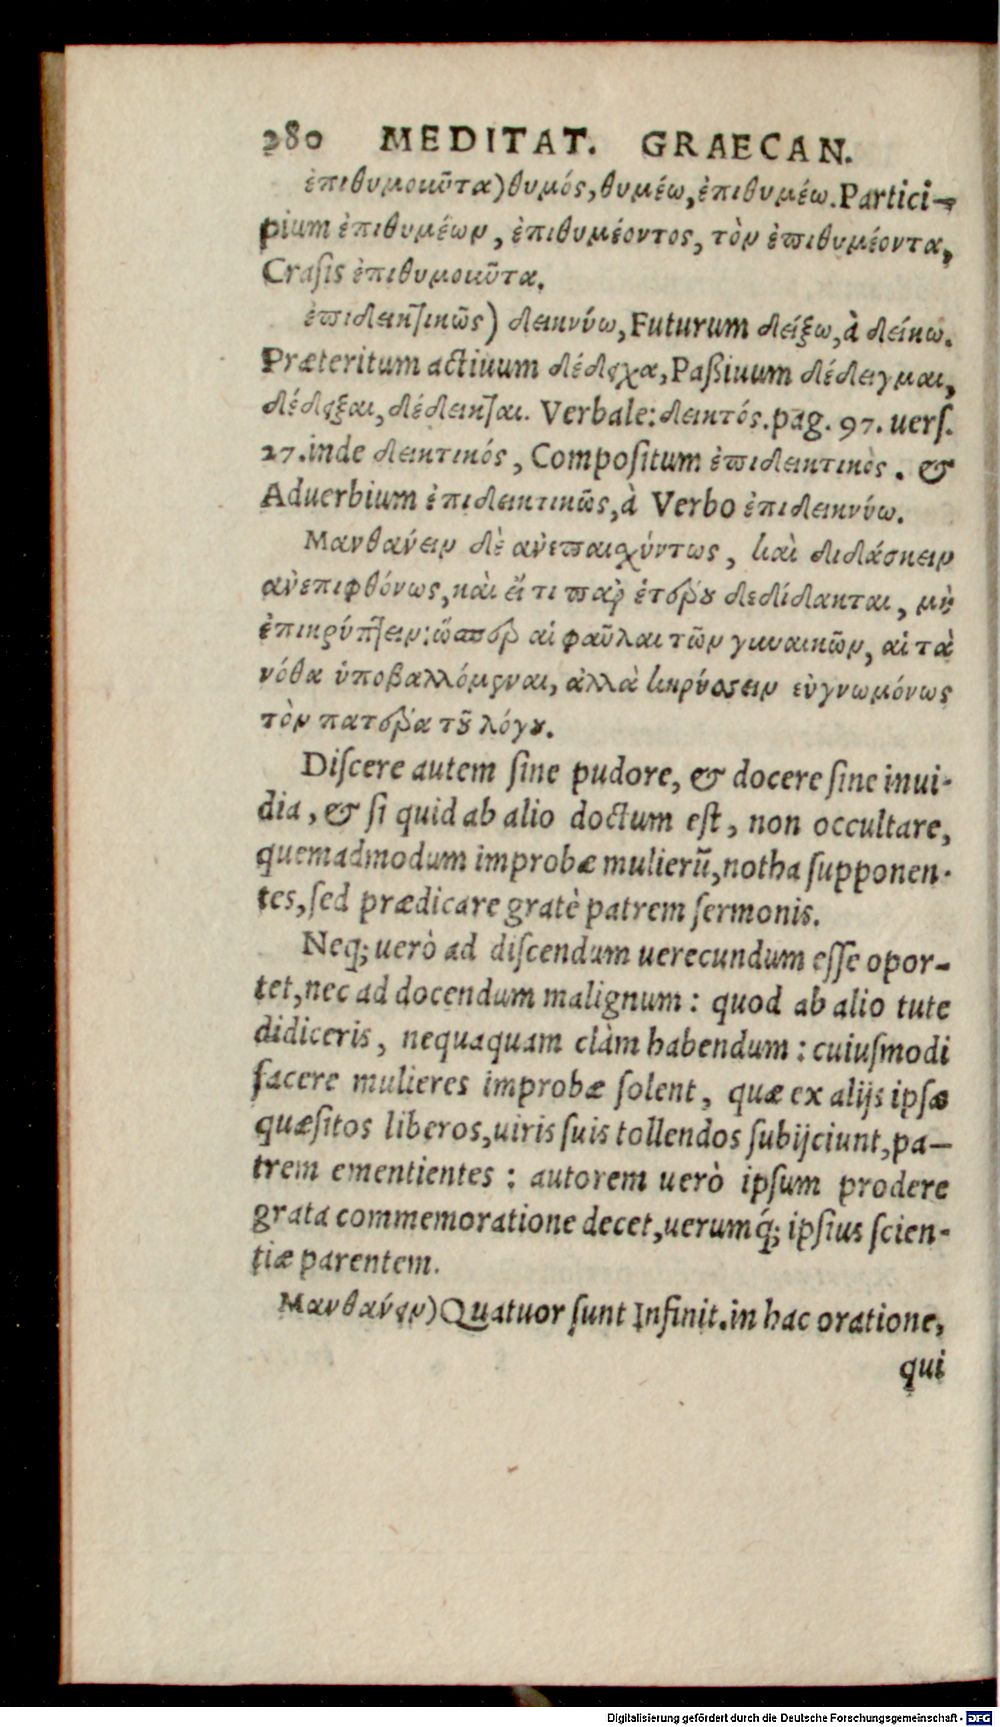 280 MEDITAT. GRAECAN.
ἐπιθυμοῦντα) θυμός, θυμέω, ἐπιθυμέω. Partici-
pium ἐπιθυμέων, ἐπιθυμέοντος, τὸν ἐπιθυμέοντα,
Craſis ἐπιθυμοῦντα.
ἐπιδεικτικῶς) δεικνύω, Futurum δείξω, à δείκω.
Præteritum actiuum δέδειχα, Paßiuum δέδειγμαι,
δέδειξαι, δέδεικται. Verbale: δεικτός. pag. 97. uerſ.
27. inde δεικτικός, Compoſitum ἐπιδεικτικὸς. &
Aduerbium ἐπιδεικτικῶς, à Verbo ἐπιδεικνύω.
Μανθάνειν δὲ ἀνεπαισχύντως, καὶ διδάσκειν
ἀνεπιφθόνως, καὶ εἴ τι παρ' ἑτέρου δεδίδακται, μὴ
ἐπικρύπτειν: ὥσπερ αἱ φαῦλαι τῶν γυναικῶν, αἱ τὰ
νόθα ὑποβαλλόμεναι, ἀλλὰ κηρύσσειν εὐγνωμόνως
τὸν πατέρα τοῦ λόγου.
Diſcere autem ſine pudore, & docere ſine inui-
dia, & ſi quid ab alio doctum eſt, non occultare,
quemadmodum improbæ mulierũ, notha ſupponen-
tes, ſed prædicare gratè patrem ſermonis.
Neq; uerò ad diſcendum uerecundum eſſe opor-
tet, nec ad docendum malignum: quod ab alio tute
didiceris, nequaquam clàm habendum: cuiuſmodi
facere mulieres improbæ ſolent, quæ ex alijs ipſæ
quæſitos liberos, uiris ſuis tollendos ſubijciunt, pa-
trem ementientes: autorem uerò ipſum prodere
grata commemoratione decet, uerumq́; ipſius ſcien-
tiæ parentem.
Μανθάνειν) Quatuor ſunt Infinit. in hac oratione,
qui
Digitalisierung gefördert durch die Deutsche Forschungsgemeinschaft - DFG